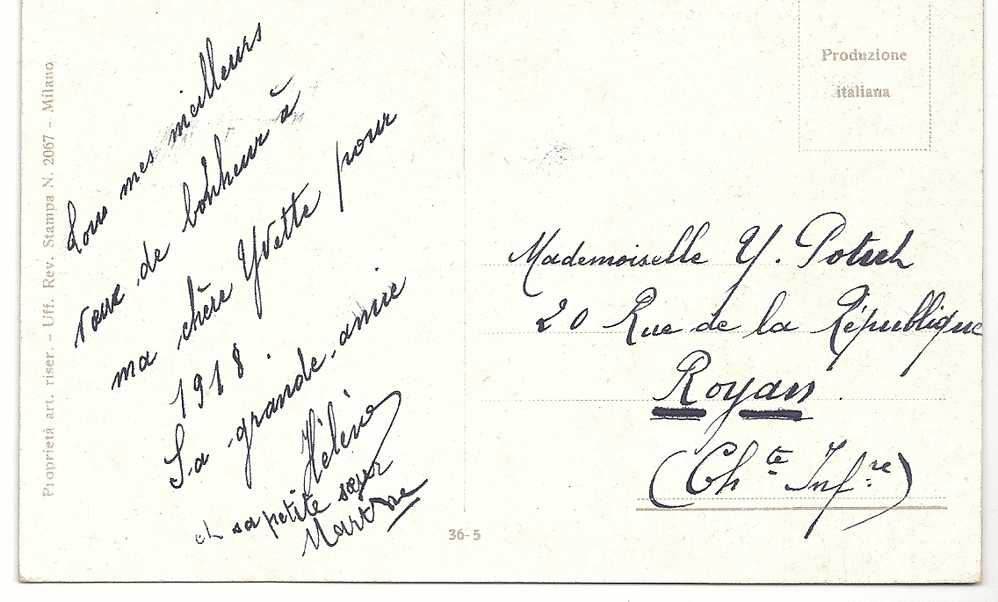 Proprietà art. riser. - Uff. Rev. Stampa N. 2067 - Milano
Tous mes meilleurs
vœux de bonheur à
ma chère Yvette pour
1918
Sa grande amie
Hélène
et sa petite sœur
36-5
Produzione
italiana
Mademoiselle Y.
20 Rue de la République
Royan
(Ch^te Inf^re)